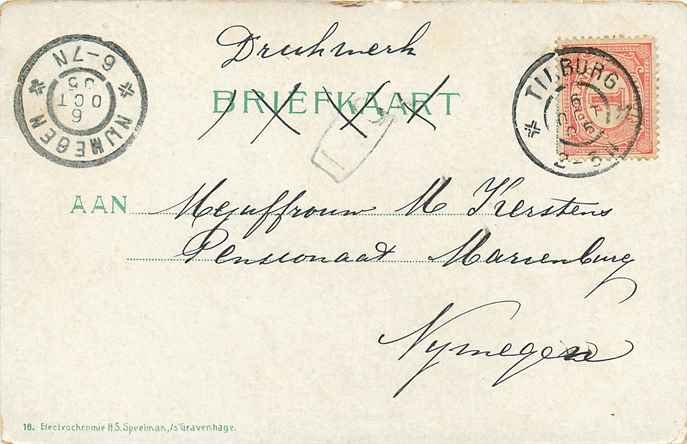 Drukwerk
BRIEFKAART
AAN Mejuffrouw M Kerstens
Pensionaat Marienburg
Nymegen
NIJMEGEN
6
OCT
05
6-7N
TILBURG
16. Electrochromie H.S. Speelman, /s'Gravenhage.